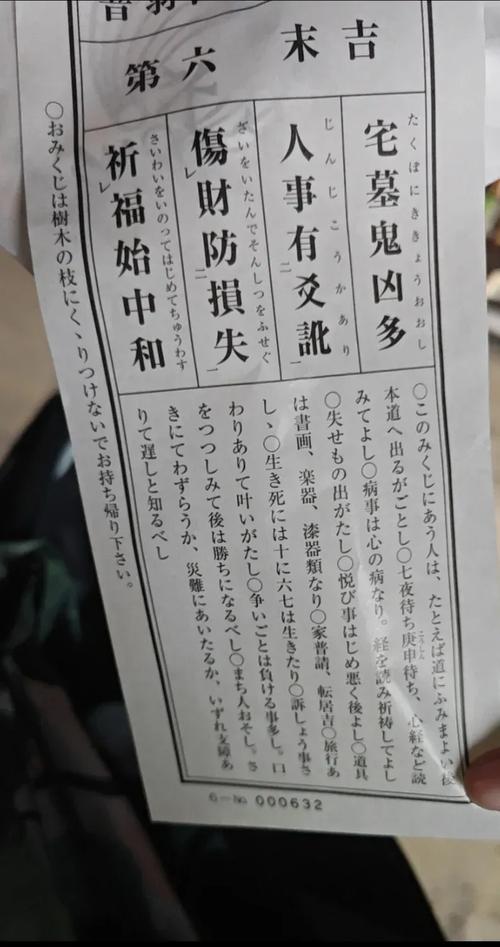 第六 末吉
宅墓鬼凶多
たくぼにききょうおおし
人事有爻訛
じんじこうかあり
傷財防損失
ざいをいたんでそんしつをふせぐ
祈福始中和
さいわいをいのってはじめてちゅうわす
〇このみくじにあう人は、たとえば道にふみまよい後
本道へ出るがごとし〇七夜待ち庚申待ち、心経など読
こうしん
みてよし〇病事は心の病なり。経を読み祈祷してよし
〇失せもの出がたし〇悦び事はじめ悪く後よし〇道具
は書画、楽器、漆器類なり〇家普請、転居吉〇旅行あ
し、〇生き死には十に六七は生きたり〇訴しょう事さ
わりありて叶いがたし〇争いごとは負ける事多し。口
をつつしみて後は勝ちになるべし〇まち人おそし。さ
きにてわずらうか、災難にあいたるか、いずれ支障あ
りて遅しと知るべし
〇おみくじは樹木の枝にくゝりつけないでお持ち帰り下さい。
6-No 000632